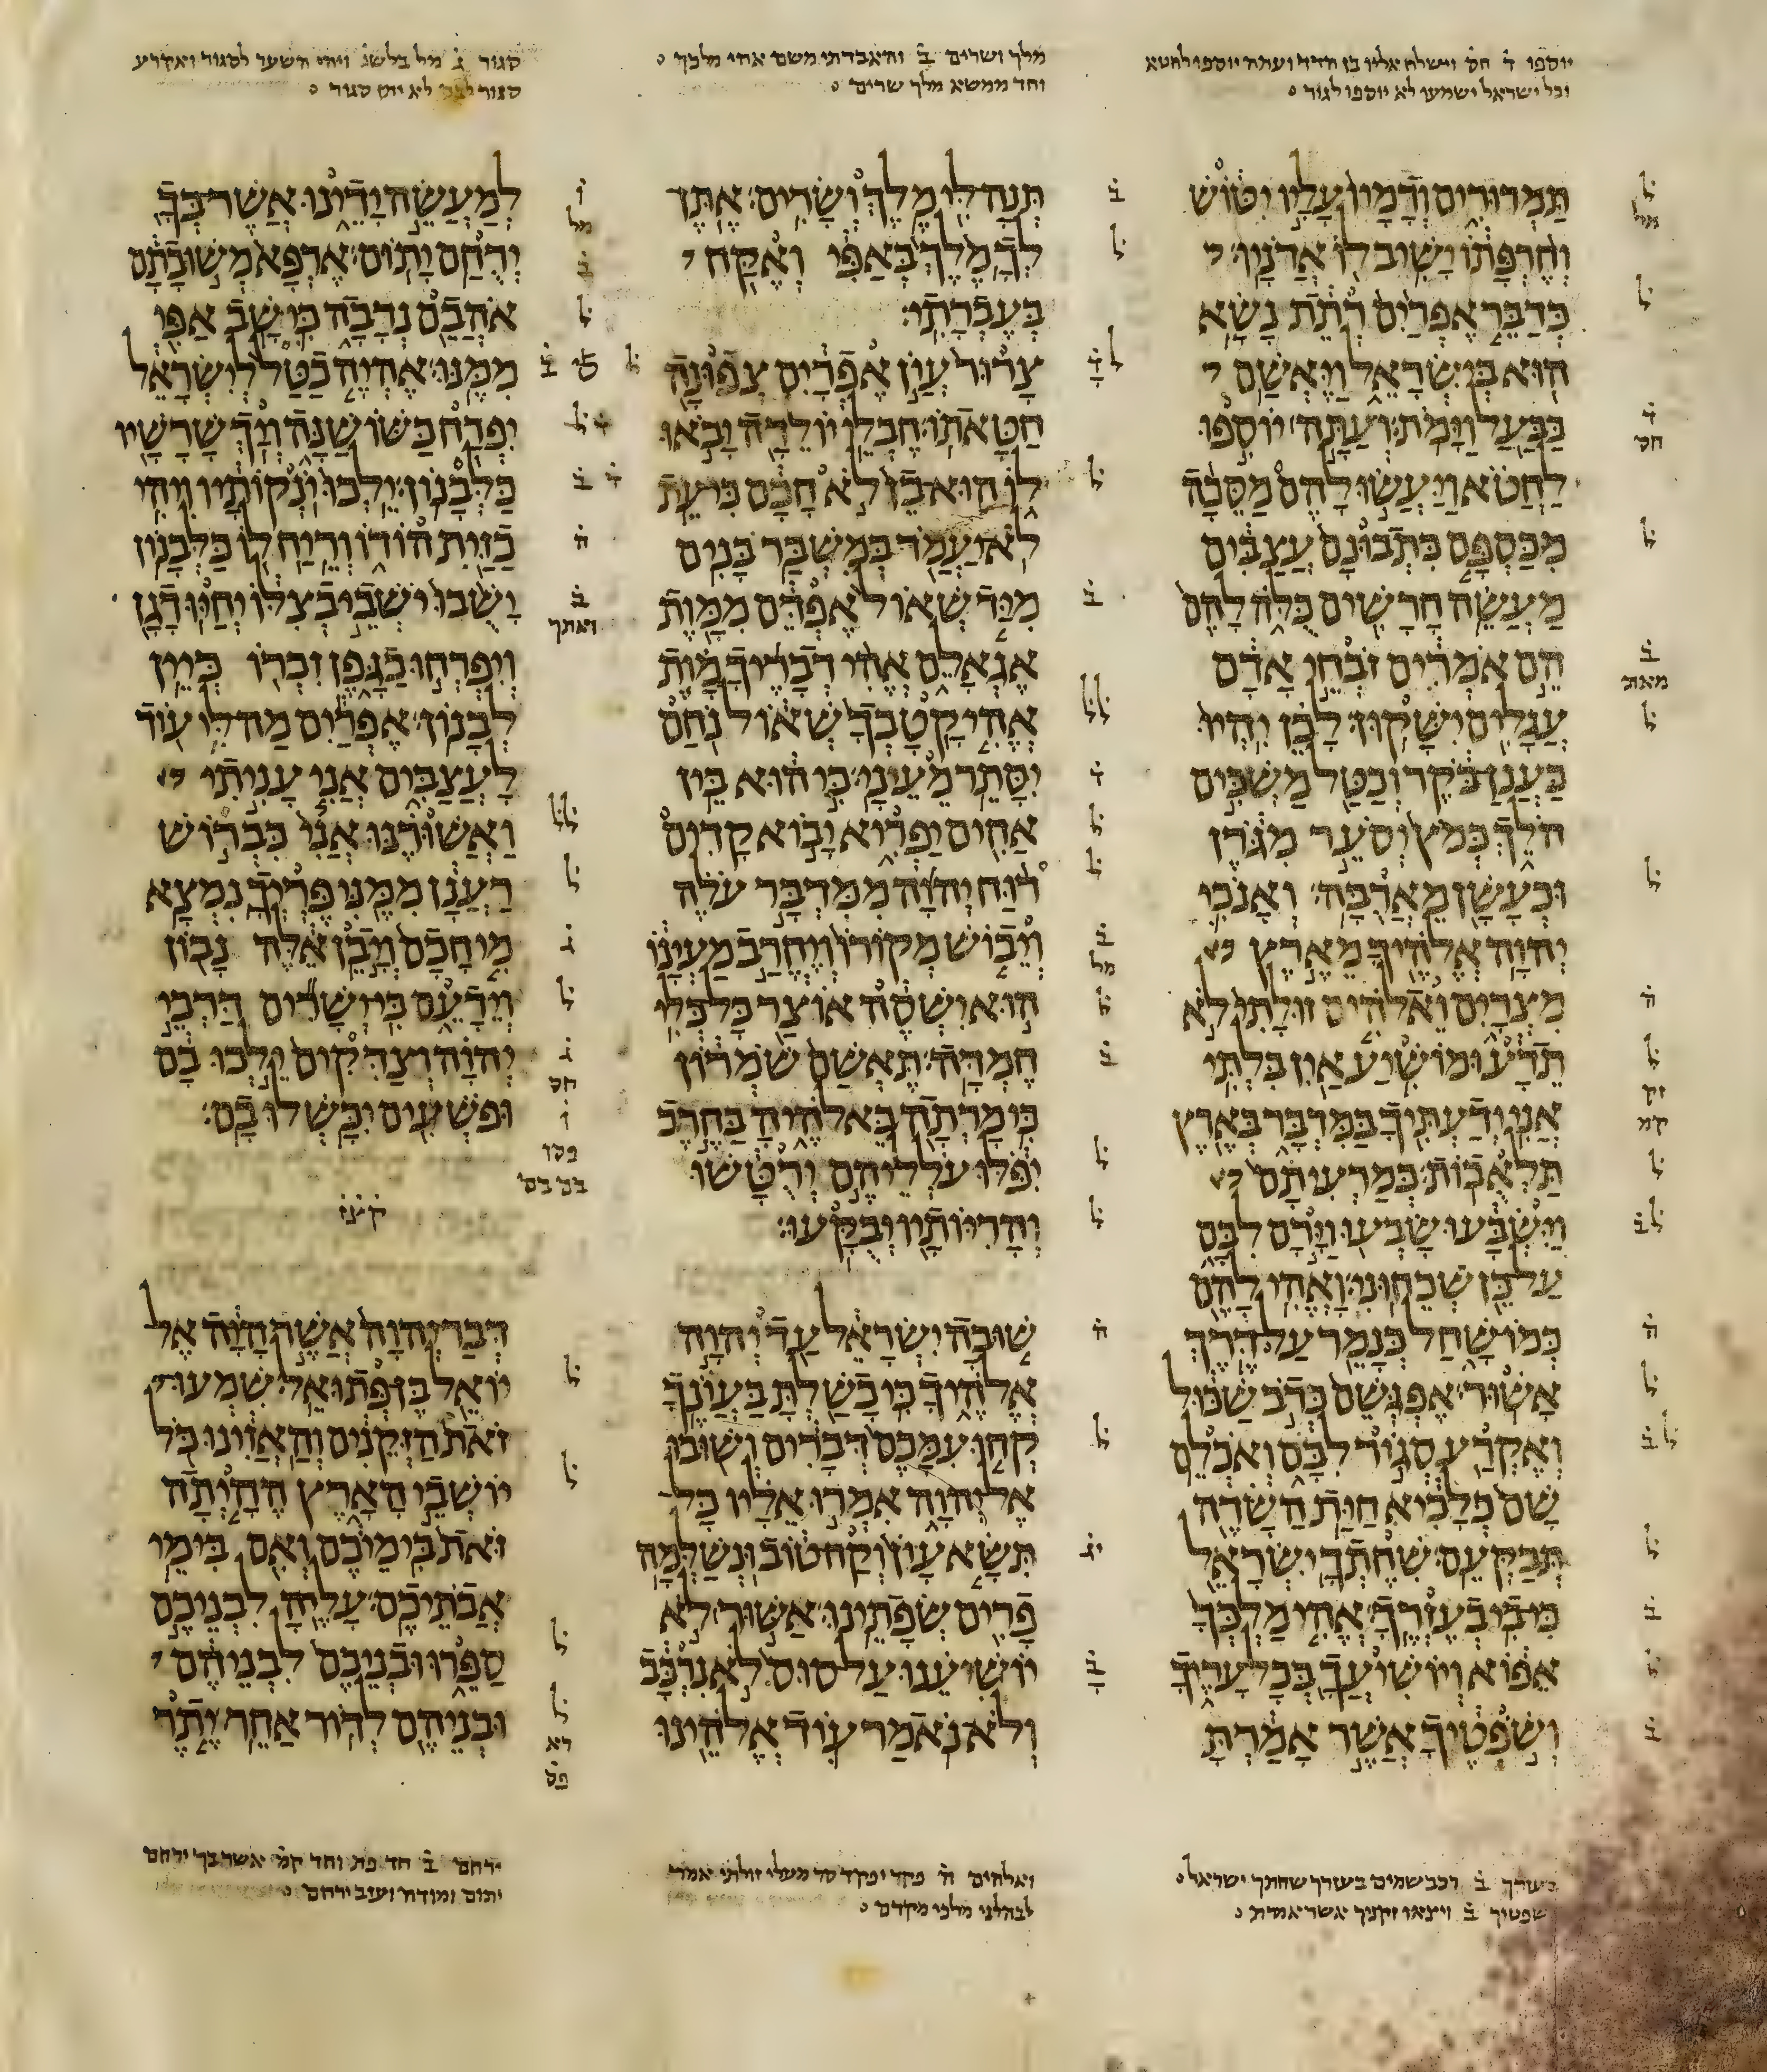 יוספו ד חס וישלח אליו בן הדד ועתה יוספו לחטא
וכל ישראל ישמעו לא יוספו לגור
מלך ושרים ב והאבדתי משם אתי מלכך
וחד ממשא מלך שרים
סגור ג מל בלשנ ויהי השער לסגור ואקרע
סגור לא יתן סגור
תמרורים ודמיו עליו יטוש
וחרפתו ישיב לו אדניו׃
כדבר אפרים רתת נשא
הוא בישראל ויאשם
בבעל וימת׃ ועתה יוספו
לחטא ויעשו להם מסכה
מכספם כתבונם עצבים
מעשה חרשים כלה להם
הם אמרים זבחי אדם
עגלים ישקון׃ לכן יהיו
כענן בקר וכטל משכים
הלך כמץ יסער מגרן
וכעשן מארבה׃ ואנכי
יהוה אלהיך מארץ
מצרים ואלהים זולתי לא
תדע ומושיע אין בלתי
אני ידעתיך במדבר בארץ
תלאבות׃ כמרעיתם
וישבעו שבעו וירם לבם
על כן שכחוני׃ ואהי להם
כמו שחל כנמר על דרך
אשור׃ אפגשם כדב שכול
ואקרע סגור לבם ואכלם
שם כלביא חית השדה
תבקעם׃ שחתך ישראל
כי בי בעזרך׃ אהי מלכך
אפוא ויושיעך בכל עריך
ושפטיך אשר אמרת
תנה לי מלך ושרים׃ אתן
לך מלך באפי ואקח
בעברתי׃
צרור עון אפרים צפונה
חטאתו׃ חבלי יולדה יבאו
לו הוא בן לא חכם כי עת
לא יעמד במשבר בנים
מיד שאול אפדם ממות
אגאלם אהי דבריך מות
אהי קטבך שאול נחם
יסתר מעיני׃ כי הוא בין
אחים יפריא יבוא קדים
רוח יהוה ממדבר עלה
ויבוש מקורו ויחרב מעינו
הוא ישסה אוצר כל כלי
חמדה׃ תאשם שמרון
כי מרתה באלהיה בחרב
יפלו עלליהם ירטשו
והריותיו יבקעו׃
שובה ישראל עד יהוה
אלהיך כי כשלת בעונך
קחו עמכם דברים ושובו
אל יהוה אמרו אליו כל
תשא עון וקח טוב ונשלמה
פרים שפתינו׃ אשור לא
יושיענו על סוס לא נרכב
ולא נאמר עוד אלהינו
למעשה ידינו אשר בך
ירחם יתום׃ ארפא משובתם
אהבם נדבה כי שב אפי
ממנו׃ אהיה כטל לישראל
יפרח כשושנה ויך שרשיו
כלבנון׃ ילכו ינקותיו ויהי
כזית הודו וריח לו כלבנון
ישבו ישבי בצלו יחיו דגן
ויפרחו כגפן זכרו כיין
לבנון׃ אפרים מה לי עוד
לעצבים אני עניתי
ואשורנו אני כברוש
רענן ממני פריך נמצא
מי חכם ויבן אלה נבון
וידעם כי ישרים דרכי
יהוה וצדקים ילכו בם
ופשעים יכשלו בם׃
קצז
דבר יהוה אשר היה אל
יואל בן פתואל׃ שמעו
זאת הזקנים והאזינו כל
יושבי הארץ ההיתה
זאת בימיכם ואם בימי
אבתיכם׃ עליה לבניכם
ספרו ובניכם לבניהם
ובניהם לדור אחר׃ יתר
בעזרך ב רכב שמים בעזרך שחתך ישראל
שפטיך ב ויצאו זקניך אשר אמרת
ואלהים ה פקד יפקד סר מעלי זולתי אמר
לבהלני מלכי מקדם
ירחם ב חד פת וחד קמ אשר בך ירחם
יתום ומודה ועזב ירחם